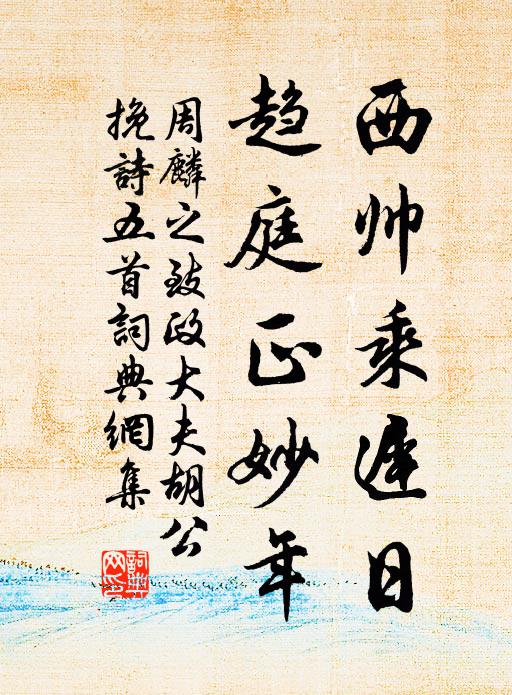 西帅乘遲日
趋庭正妙年
周麟之致政大夫胡公
挽詩五首詞典網集